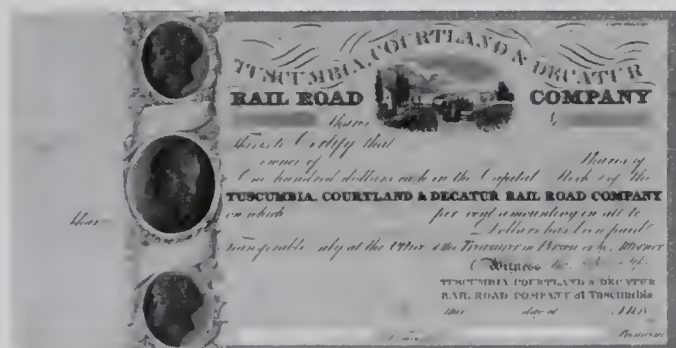 TUSCUMBIA, COURTLAND & DECATUR
RAIL ROAD COMPANY
Shares $
This is to Certify that
owner of Shares of
One hundred dollars each in the Capital Stock of the
TUSCUMBIA, COURTLAND & DECATUR RAIL ROAD COMPANY
on which per cent amounting in all to
Dollars has been paid
transferable only at the Office of the Treasurer in Person or by Attorney
Witness
TUSCUMBIA COURTLAND & DECATUR
RAIL ROAD COMPANY at Tuscumbia
this day of